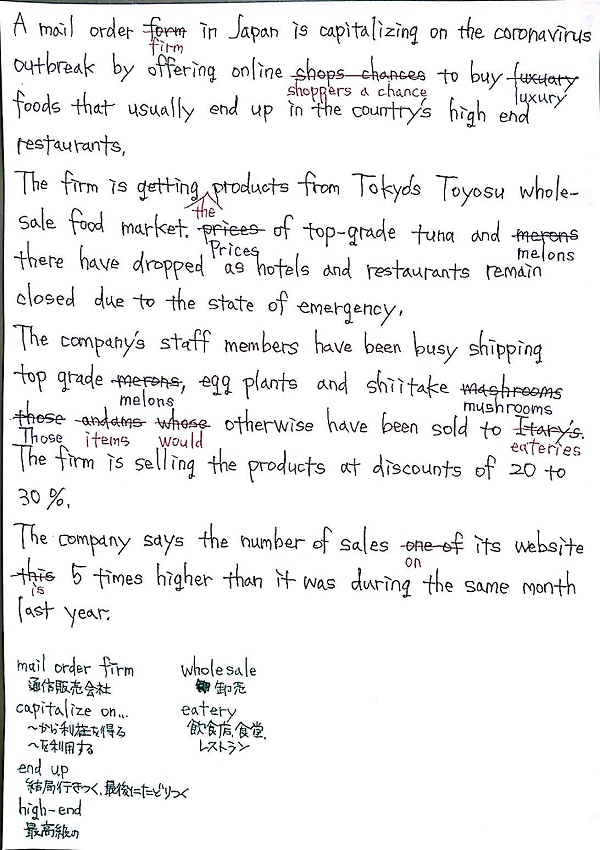 A mail order form in Japan is capitalizing on the coronavirus
firm
outbreak by offering online shops chances to buy luxuary
shoppers a chance luxury
foods that usually end up in the country's high end
restaurants.
The firm is getting products from Tokyo's Toyosu whole-
the
sale food market. prices of top-grade tuna and merons
Prices melons
there have dropped as hotels and restaurants remain
closed due to the state of emergency.
The company's staff members have been busy shipping
top grade merons, egg plants and shiitake mashrooms
melons mushrooms
those andams whose otherwise have been sold to Itary's.
Those items would eateries
The firm is selling the products at discounts of 20 to
30%.
The company says the number of sales one of its website
on
this 5 times higher than it was during the same month
is
last year.
mail order firm wholesale
通信販売会社 卸売
capitalize on... eatery
～から利益を得る 飲食店、食堂、
～を利用する レストラン
end up
結局行きつく、最後にたどりつく
high-end
最高級の